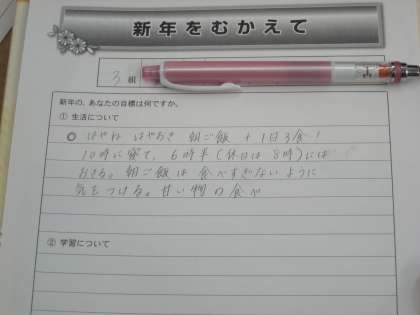 新年をむかえて
3 組
新年の、あなたの目標は何ですか。
① 生活について
◎ はやね はやおき 朝ご飯 + 1日3食!
10時に寝て、6時半(休日は8時)には
おきる。朝ご飯は食べすぎないように
気をつける。甘い物の食べ
② 学習について